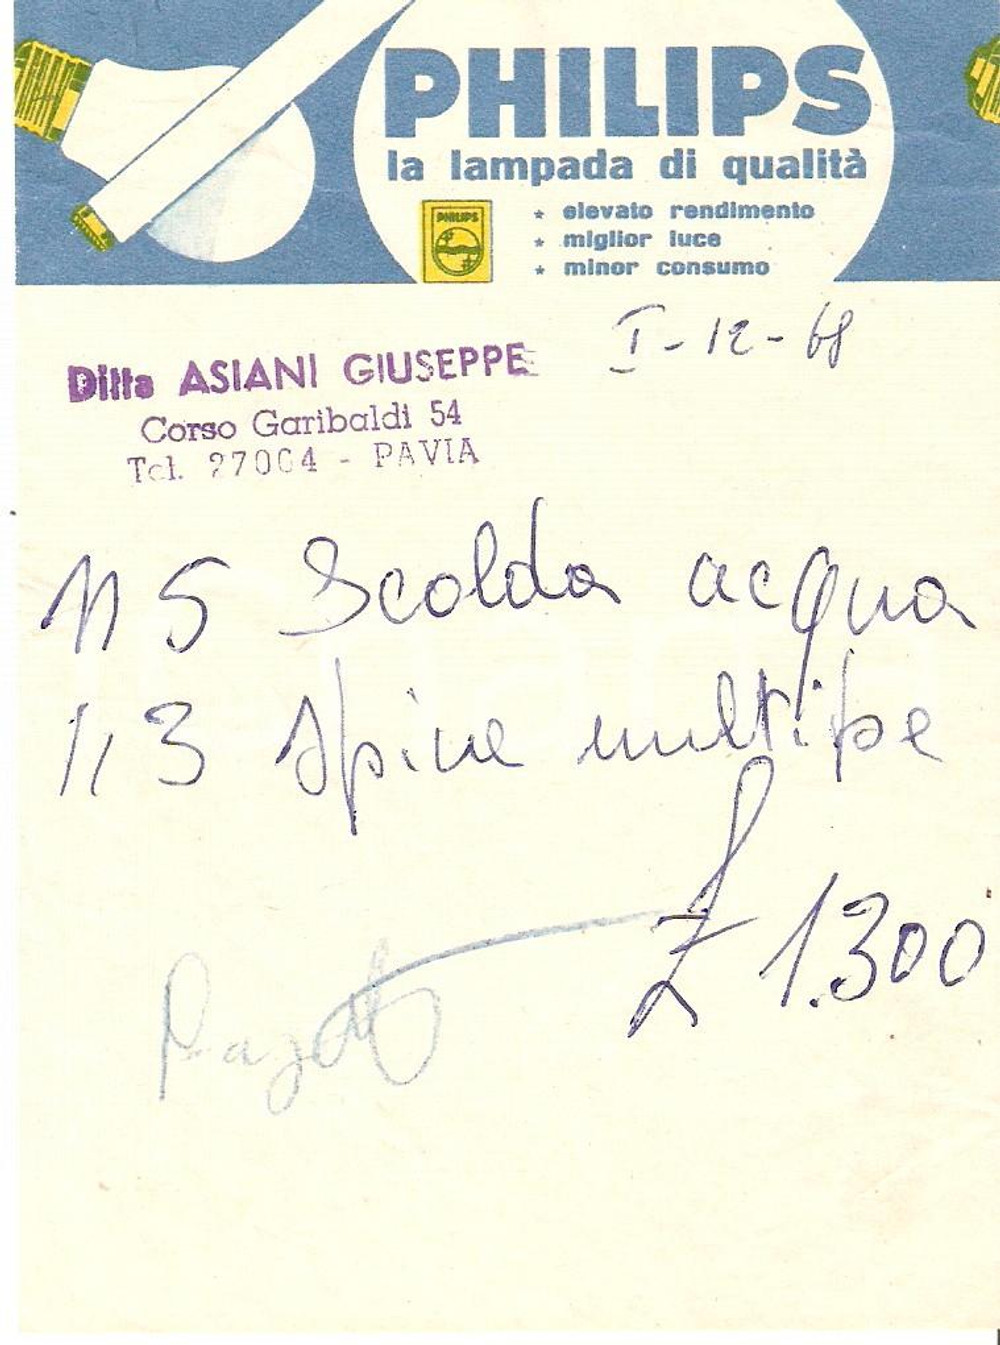 PHILIPS
la lampada di qualità
PHILIPS
* elevato rendimento
* miglior luce
* minor consumo
I-12-68
Ditta ASIANI GIUSEPPE
Corso Garibaldi 54
Tel. 27004 - PAVIA
N 5 Scolda acqua
N 3 spine multipe
£ 1.300
Pagato